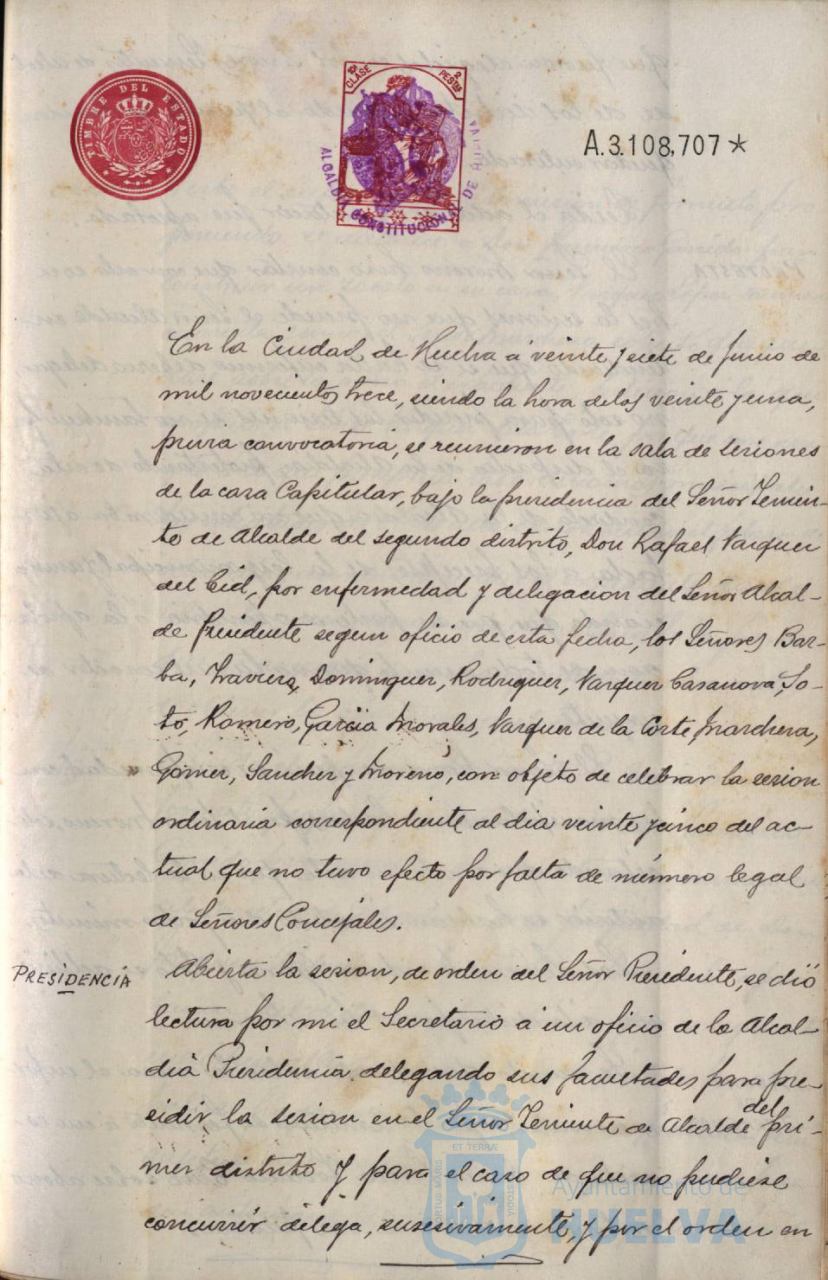 TIMBRE DEL ESTADO
10ª CLASE 2 PESETAS
ALCALDIA CONSTITUCIONAL DE
A.3.108,707*
En la Ciudad de Huelva á veinte y siete de Junio de
mil novecientos trece, siendo la hora de las veinte y una,
previa convocatoria, se reunieron en la sala de sesiones
de la casa Capitular, bajo la presidencia del Señor Tenien-
te de Alcalde del segundo distrito, Don Rafael Vazquez
del Cid, por enfermedad y delegacion del Señor Alcal-
de Presidente segun oficio de esta fecha, los Señores Bar-
ba, Traviera, Dominguez, Rodriguez, Vazquez Casanova, So-
to, Romero, García Morales, Vazquez de la Corte, Marchena,
Gomez, Sanchez y Moreno, con objeto de celebrar la sesion
ordinaria correspondiente al dia veinte y cinco del ac-
tual que no tuvo efecto por falta de número legal
de Señores Concejales.
PRESIDENCIA
Abierta la sesion, de orden del Señor Presidente, se dió
lectura por mi el Secretario á un oficio de la Alcal-
día Presidencia delegando sus facultades para pre-
sidir la sesion en el Señor Teniente de Alcalde del pri-
mer distrito y para el caso de que no pudiese
concurrir delega, susesivamente, y por el orden en
ET TERRÆ
PORTUS MARIS
CUSTODIA
Ayuntamiento de
HUELVA